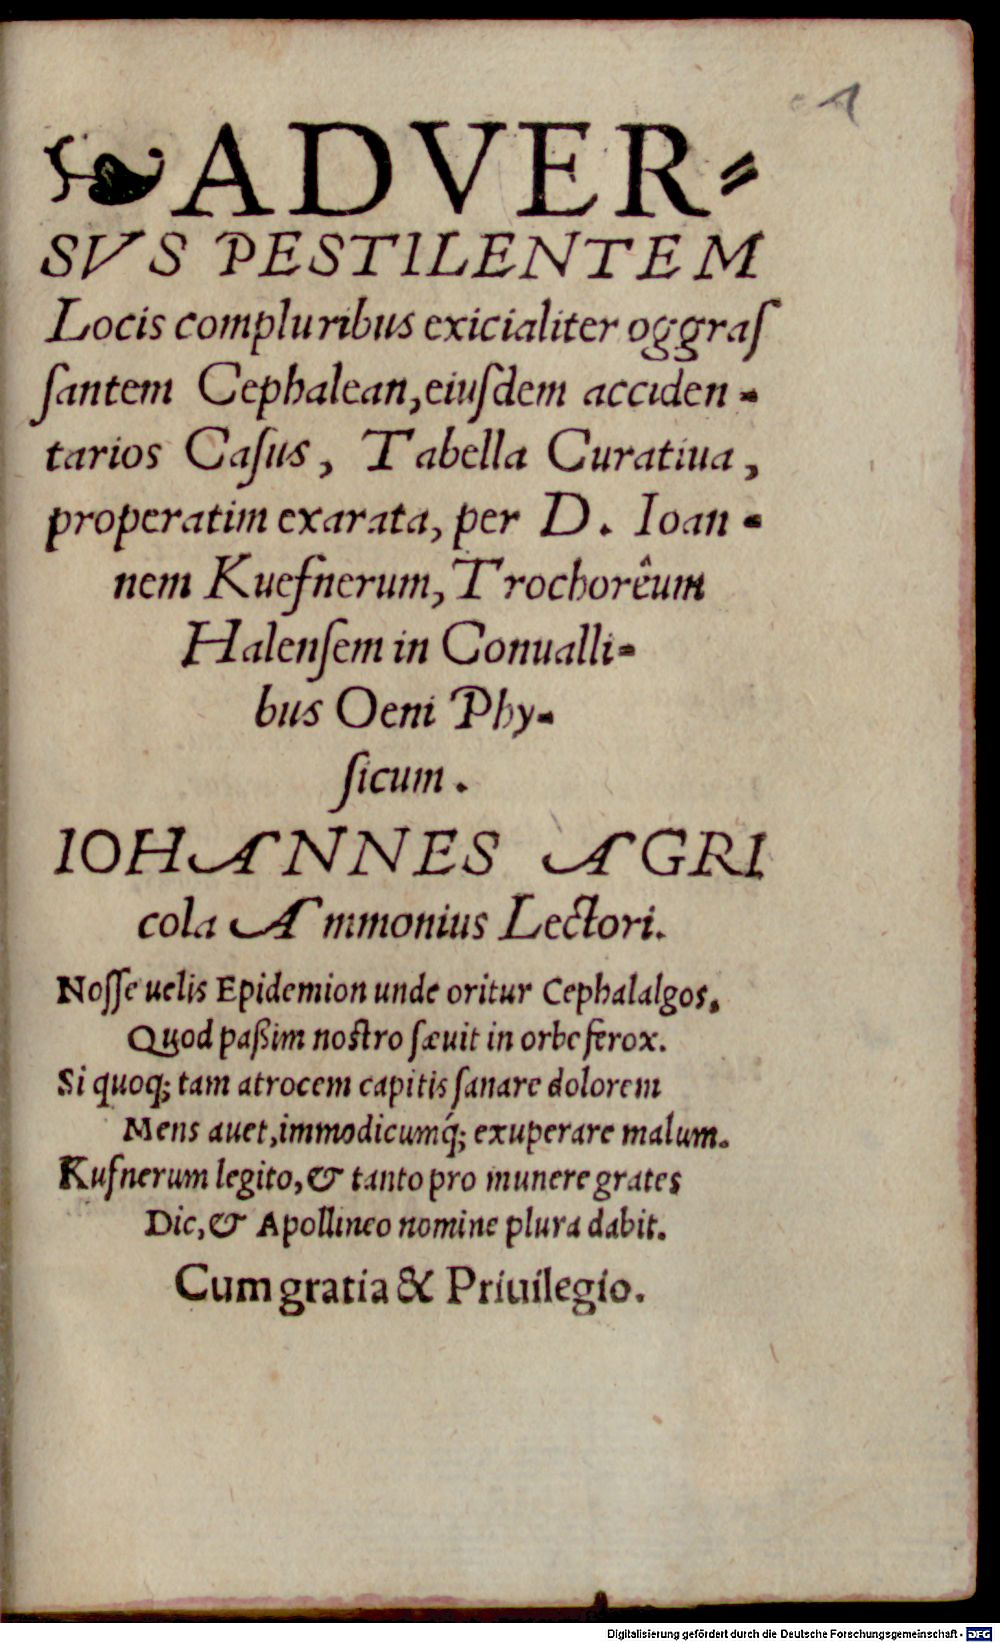 A
❧ADVER⸗
SVS PESTILENTEM
Locis compluribus exicialiter oggraſ
ſantem Cephalean, eiuſdem acciden⸗
tarios Caſus, Tabella Curatiua,
properatim exarata, per D. Ioan⸗
nem Kueſnerum, Trochorêum
Halenſem in Conualli⸗
bus Oeni Phy⸗
ſicum.
IOHANNES AGRI
cola Ammonius Lectori.
Noſſe uelis Epidemion unde oritur Cephalalgos,
Quod paßim noſtro ſæuit in orbe ferox.
Si quoq; tam atrocem capitis ſanare dolorem
Mens auet, immodicumq́; exuperare malum.
Kuſnerum legito, & tanto pro munere grates
Dic, & Apollineo nomine plura dabit.
Cum gratia & Priuilegio.
Digitalisierung gefördert durch die Deutsche Forschungsgemeinschaft - DFG